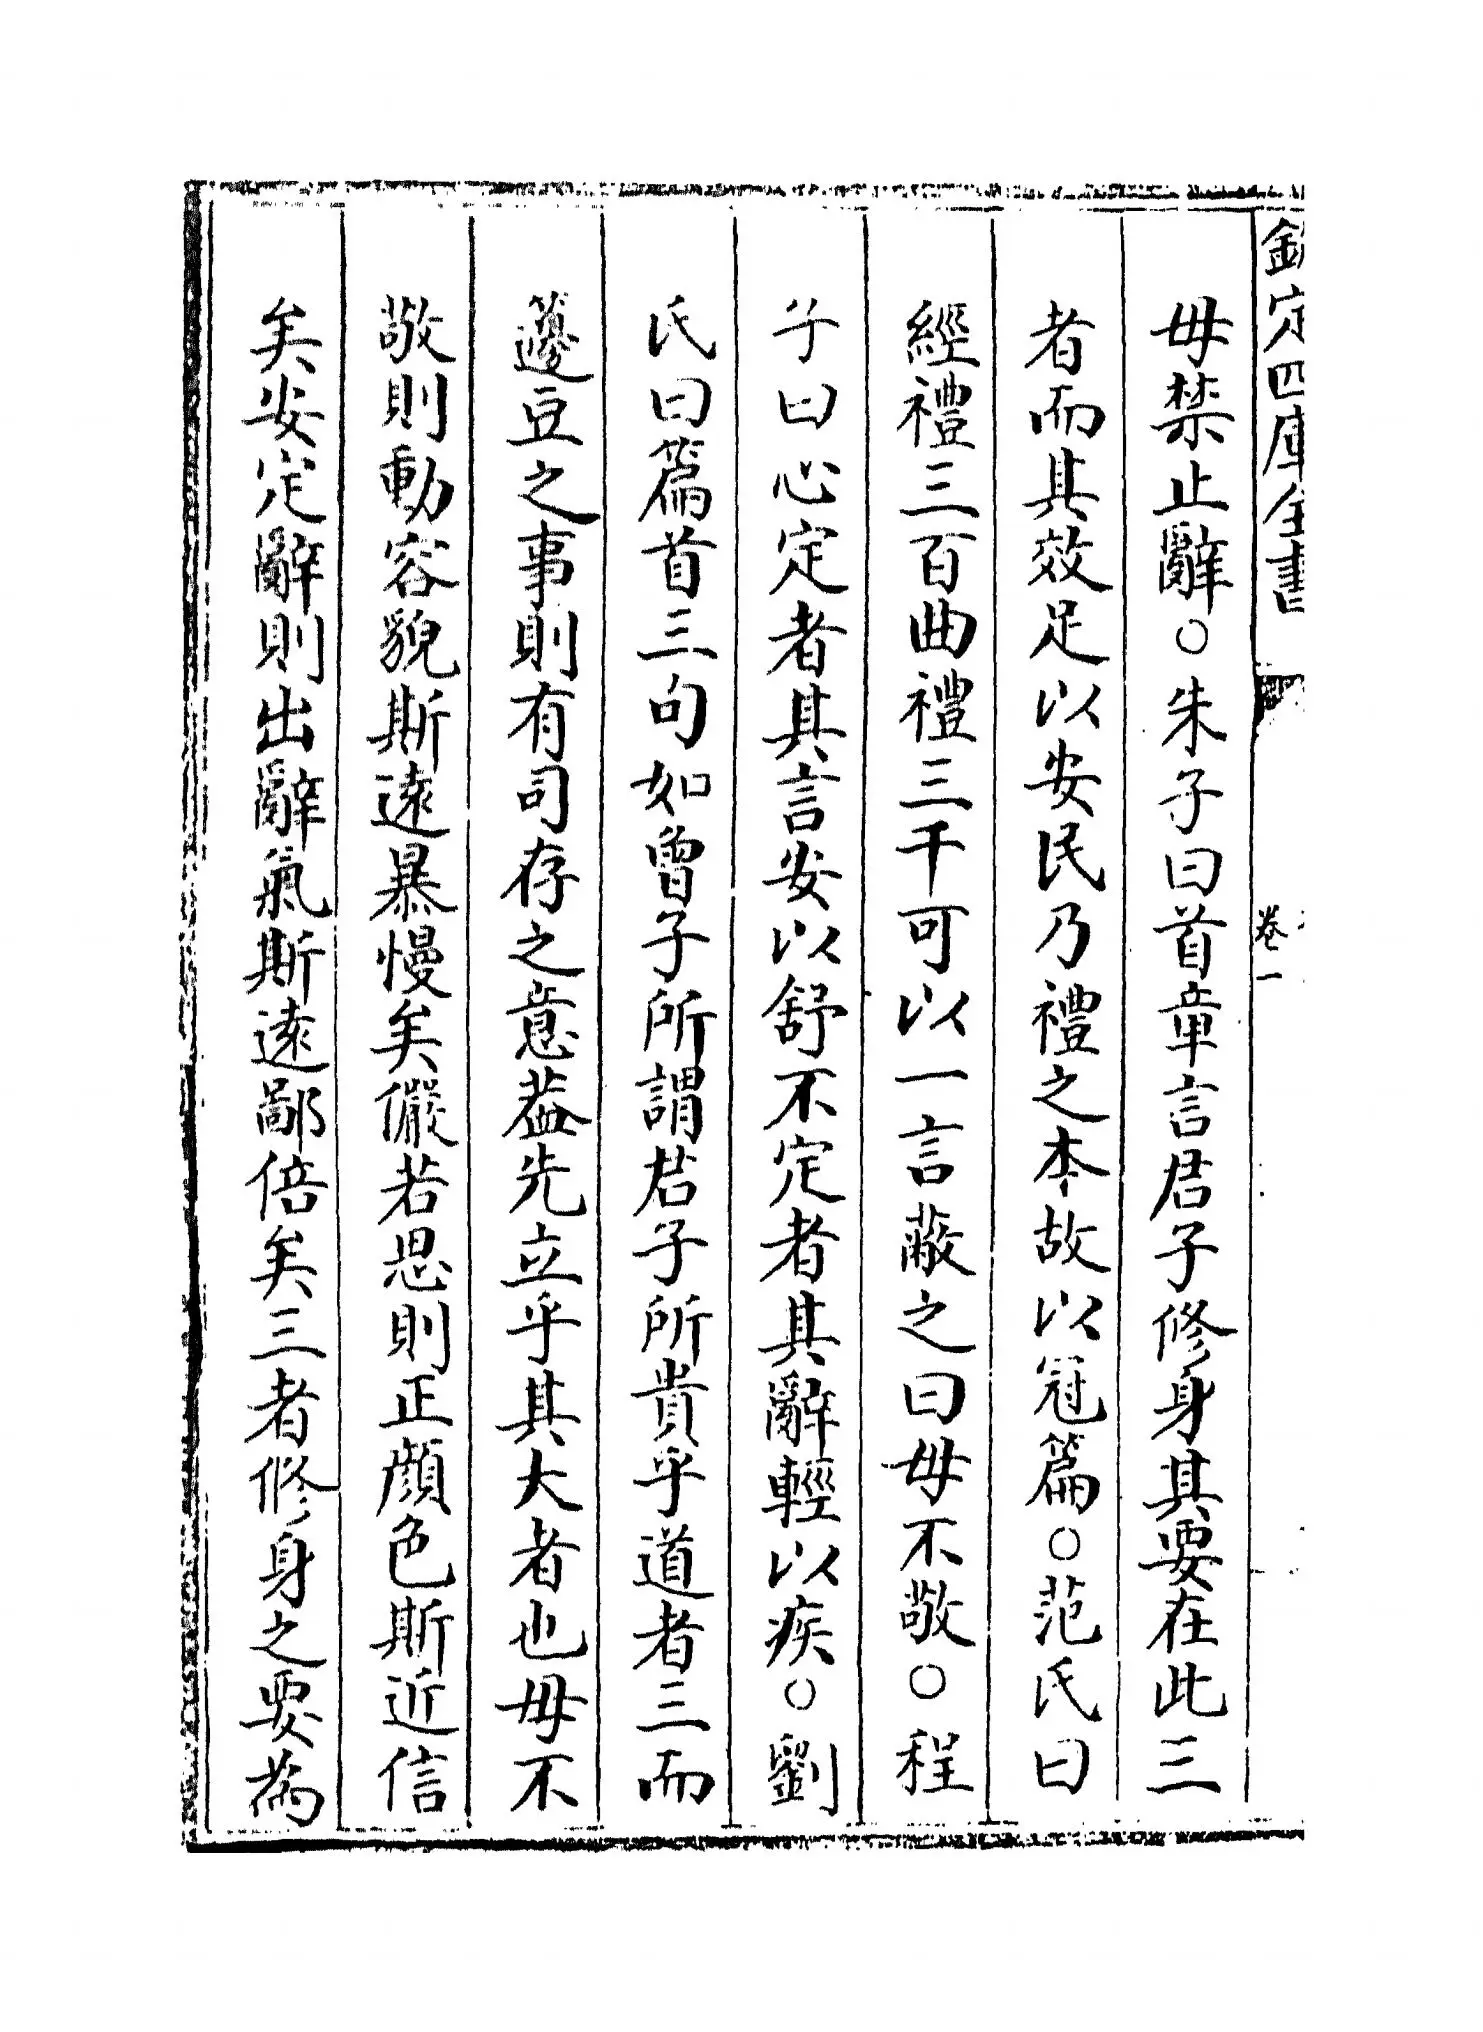 欽定四庫全書
卷一
毋禁止辭○朱子曰首章言君子修身其要在此三
者而其效足以安民乃禮之本故以冠篇○范氏曰
經禮三百曲禮三千可以一言蔽之曰毋不敬○程
子曰心定者其言安以舒不定者其辭輕以疾○劉
氏曰篇首三句如曾子所謂君子所貴乎道者三而
籩豆之事則有司存之意葢先立乎其大者也毋不
敬則動容貌斯遠暴慢矣儼若思則正顔色斯近信
矣安定辭則出辭氣斯遠鄙倍矣三者修身之要為